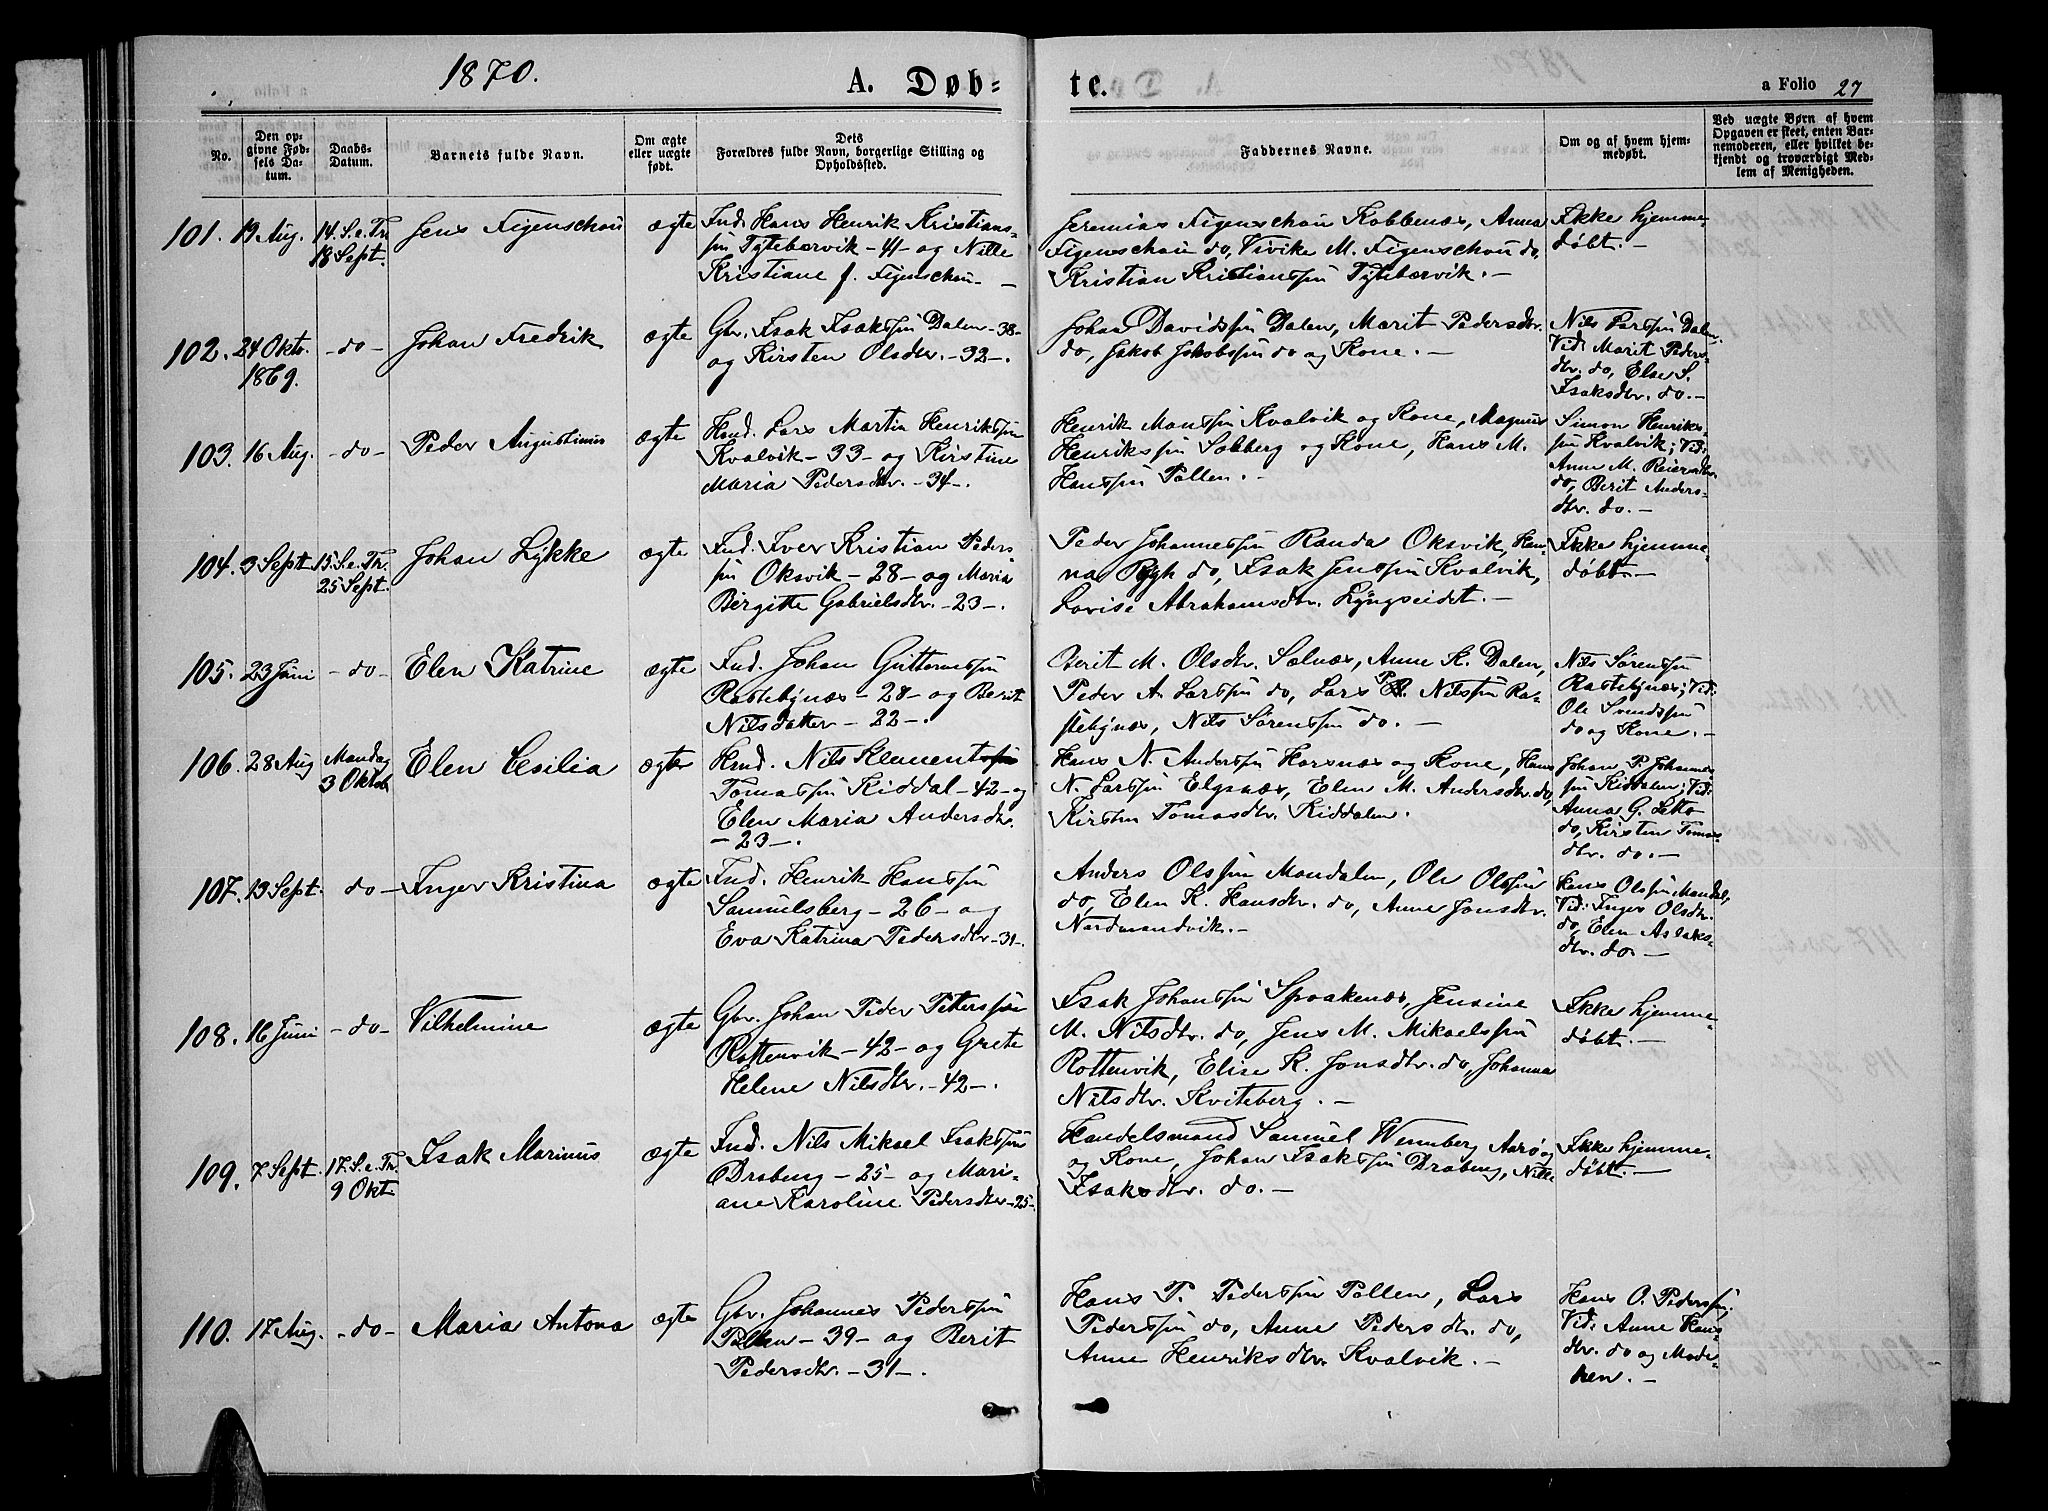 1870.
A. Døb=
te.
a Folio 27
No.
Den op=
givne Fød=
sels Da=
tum.
Daabs=
Datum.
Barnets fulde Navn.
Om ægte
eller uægte
født.
Dets
Forældres fulde Navn, borgerlige Stilling og
Opholdssted.
Faddernes Navne.
Om og af hvem hjem=
medøbt.
Ved uægte Børn af hvem
Opgaven er skeet, enten Bar=
nemoderen, eller hvilket be=
kjendt og troværdigt Med=
lem af Menigheden.
101. 19 Aug. 14. S. e. Tr.
18 Sept. Jens Figenschou ægte
Ind. Hans Henrik Kristians=
søn Tytebærvik - 41 - og Nille
Kristiane f. Figenschou -
Jeremias Figenschou Kobbenæs, Anna
Figenschou do, Vivike M. Figenschou do,
Kristian Kristianssøn Tytebærvik. -
Ikke hjemme=
døbt. -
102. 24 Okto.
1869. - do - Johan Fredrik ægte
Gbr. Isak Isakssøn Dalen - 38 -
og Kirsten Olsdtr. - 32 -.
Johan Davidssøn Dalen, Marit Pedersdtr.
do, Jakob Jakobssøn do og Kone. -
Nils Larssøn Dalen.
Vid: Marit Peders=
dtr. do, Else S.
Isaksdtr. do. -
103. 16 Aug. - do - Peder Augustinus ægte
Hmd. Lars Martin Henrikssøn
Kvalvik - 33 - og Kirstine
Maria Pedersdtr. - 34 -.
Henrik Monssøn Kvalvik og Kone, Magnus
Henrikssøn Solberg og Kone, Hans M.
Hanssøn Pollen. -
Simon Henriks=
søn Kvalvik; Vid:
Anne M. Reiersdtr.
do, Berit Anders=
dtr. do. -
104. 3 Sept. 15. S. e. Tr.
25 Sept. Johan Lykke ægte
Ind. Iver Kristian Peders
søn Oksvik - 28 - og Maria
Birgitte Gabrielsdtr. - 23 -.
Peder Johannessøn Randa Oksvik, Han=
na Rygh do, Isak Jenssøn Kvalvik,
Lovise Abrahamsdtr. Lyngseidet. -
Ikke hjemme=
døbt. -
105. 23 Juni - do - Elen Katrine ægte
Ind. Johan Guttormssøn
Rastebynæs - 28 - og Berit
Nilsdatter - 22 -.
Berit M. Olsdtr. Solnæs, Anne K. Dalen,
Peder A. Larssøn do, Lars P. Nilssøn Ra=
stebynæs, Nils Sørenssøn do. -
Nils Sørenssøn
Rastebynæs; Vid:
Ole Svendssøn
do og Kone. -
106. 28 Aug Mandag
3 Oktob Elen Cesilia ægte
Hmd. Nils Klementssøn
Tomassøn Kiddal - 42 - og
Elen Maria Andersdtr.
- 23 -.
Hans N. Anderssøn Horsnæs og Kone, Hans
N. Larssøn Elgsnæs, Elen M. Andersdtr. do,
Kirsten Tomasdtr. Kiddalen.
Johan P. Johannes
søn Kiddalen; Vid:
Anna G. Lotto
do, Kirsten Tomas
dtr. do. -
107. 13 Sept. do - Inger Kristina ægte
Ind. Henrik Hanssøn
Samuelsberg - 26 - og
Eva Katrina Pedersdtr. - 31 -.
Anders Olssøn Mandalen, Ole Olssøn
do, Elen K. Hansdtr. do, Anne Jonsdtr.
Nordmandvik. -
Hans Olssøn Mandal,
Vid: Inger Olsdtr.
do, Elen Aslaks=
dtr. do. -
108. 16 Juni - do - Vilhelmine ægte
Gbr. Johan Peder Peterssøn
Rottenvik - 42 - og Grete
Helene Nilsdtr. - 42 -.
Isak Johanssøn Spaakenæs, Jensine
M. Nilsdtr. do, Jens M. Mikaelssøn
Rottenvik, Elise K. Jonsdtr. do, Johanna
Nilsdtr. Kviteberg. -
Ikke hjemme=
døbt. -
109. 7 Sept. 17. S. e. Tr.
9 Okt. Isak Marinus ægte
Ind. Nils Mikael Isakssøn
Drabeng - 25 - og Mari=
ane Karoline Pedersdtr - 25 -.
Handelsmand Samuel Wennberg Aarø
og Kone, Johan Isakssøn Drabeng, Nille
Isaksdtr. do. -
Ikke hjemme=
døbt. -
110. 17 Aug. - do - Maria Antona ægte
Gbr. Johannes Pederssøn
Pollen - 39 - og Berit
Pedersdtr. - 31 -.
Hans P. Pederssøn Pollen, Lars
Pederssøn do, Anne Pedersdtr. do,
Anne Henriksdtr. Kvalvik. -
Hans O. Pederssøn;
Vid: Anne Hans
dtr. do og Mode=
ren. -